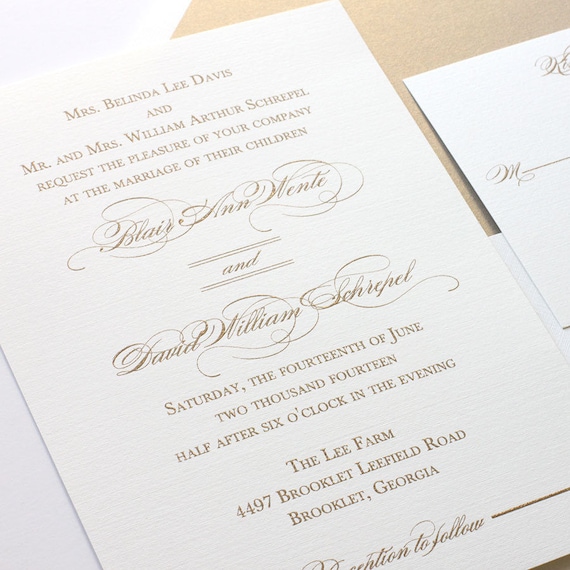 Mrs. Belinda Lee Davis
and
Mr. and Mrs. William Arthur Schrepel
request the pleasure of your company
at the marriage of their children
Blair Ann Wente
and
David William Schrepel
Saturday, the fourteenth of June
two thousand fourteen
half after six o'clock in the evening
The Lee Farm
4497 Brooklet Leefield Road
Brooklet, Georgia
Reception to follow
M